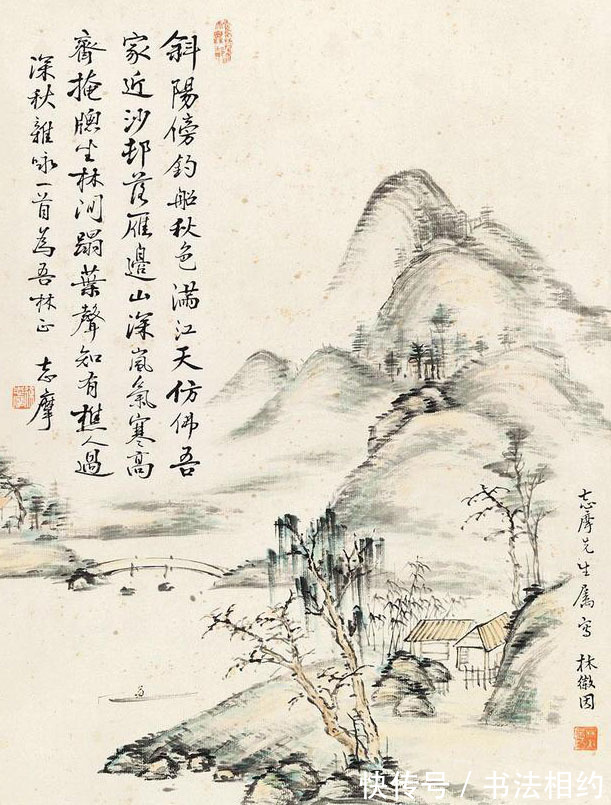 斜陽傍釣船秋色滿江天仿佛吾
家近沙邨落雁邊山深嵐氣寒高
齋掩牕坐林间蹋葉聲知有樵人過
深秋雜咏一首為吾林正 志摩
志摩先生属寫 林徽因
快传号 / 书法相约